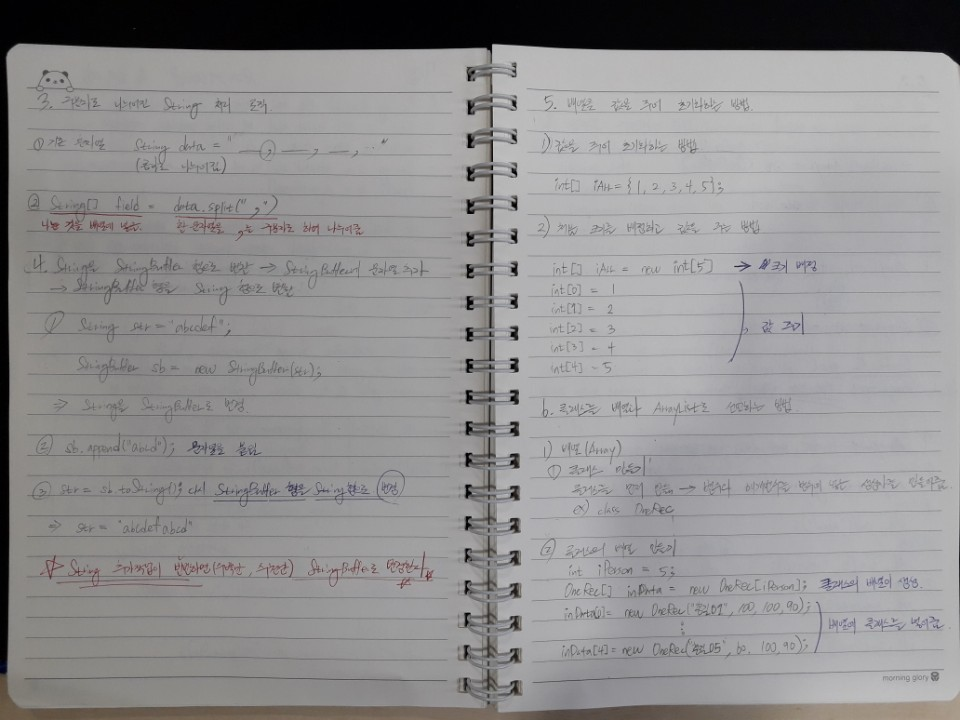 3. 구분자로 나누어진 String 처리 문자
① 기존 문자열 String data = " ―, ―, ―, …"
(콤마로 나누어짐)
② String[] field = data.split(",")
나눈 것을 배열에 넣는다. 한 문자열을 ,는 구분자로 하여 나누어줌
4. String을 StringBuffer 형으로 변환 → StringBuffer에 문자열 추가
→ StringBuffer 형을 String 형으로 변환
① String str = "abcdef";
StringBuffer sb = new StringBuffer(str);
⇒ String을 StringBuffer로 변경
② sb.append("abcd"); 문자열을 붙임
③ str = sb.toString(); StringBuffer 형을 String형으로 변경
⇒ str = "abcdefabcd"
☆ String 추가작업이 빈번하면 StringBuffer로 변경한다
5. 배열을 값을 주어 초기화하는 방법.
1) 값을 주어 초기화하는 방법
int[] iAll = {1, 2, 3, 4, 5};
2) 처음 크기를 배정하고 값을 주는 방법
int[] iAll = new int[5] → 크기 배정
int[0] = 1
int[1] = 2
int[2] = 3 값 주기
int[3] = 4
int[4] = 5
6. 클래스를 배열과 ArrayList로 선언하는 방법
1) 배열(Array)
① 클래스 만들기
클래스를 먼저 만듦 → 변수와 매개변수를 변수에 넣는 생성자를 만들어줌.
ex) class OneRec
② 클래스의 배열 만들기
int iPerson = 5;
OneRec[] inData = new OneRec[iPerson]; 클래스의 배열의 생성.
inData[0] = new OneRec("홍길01", 100, 100, 90);
⋮ 배열에 클래스를 넣어줌.
inData[4] = new OneRec("홍길05", 60, 100, 90);
morning glory